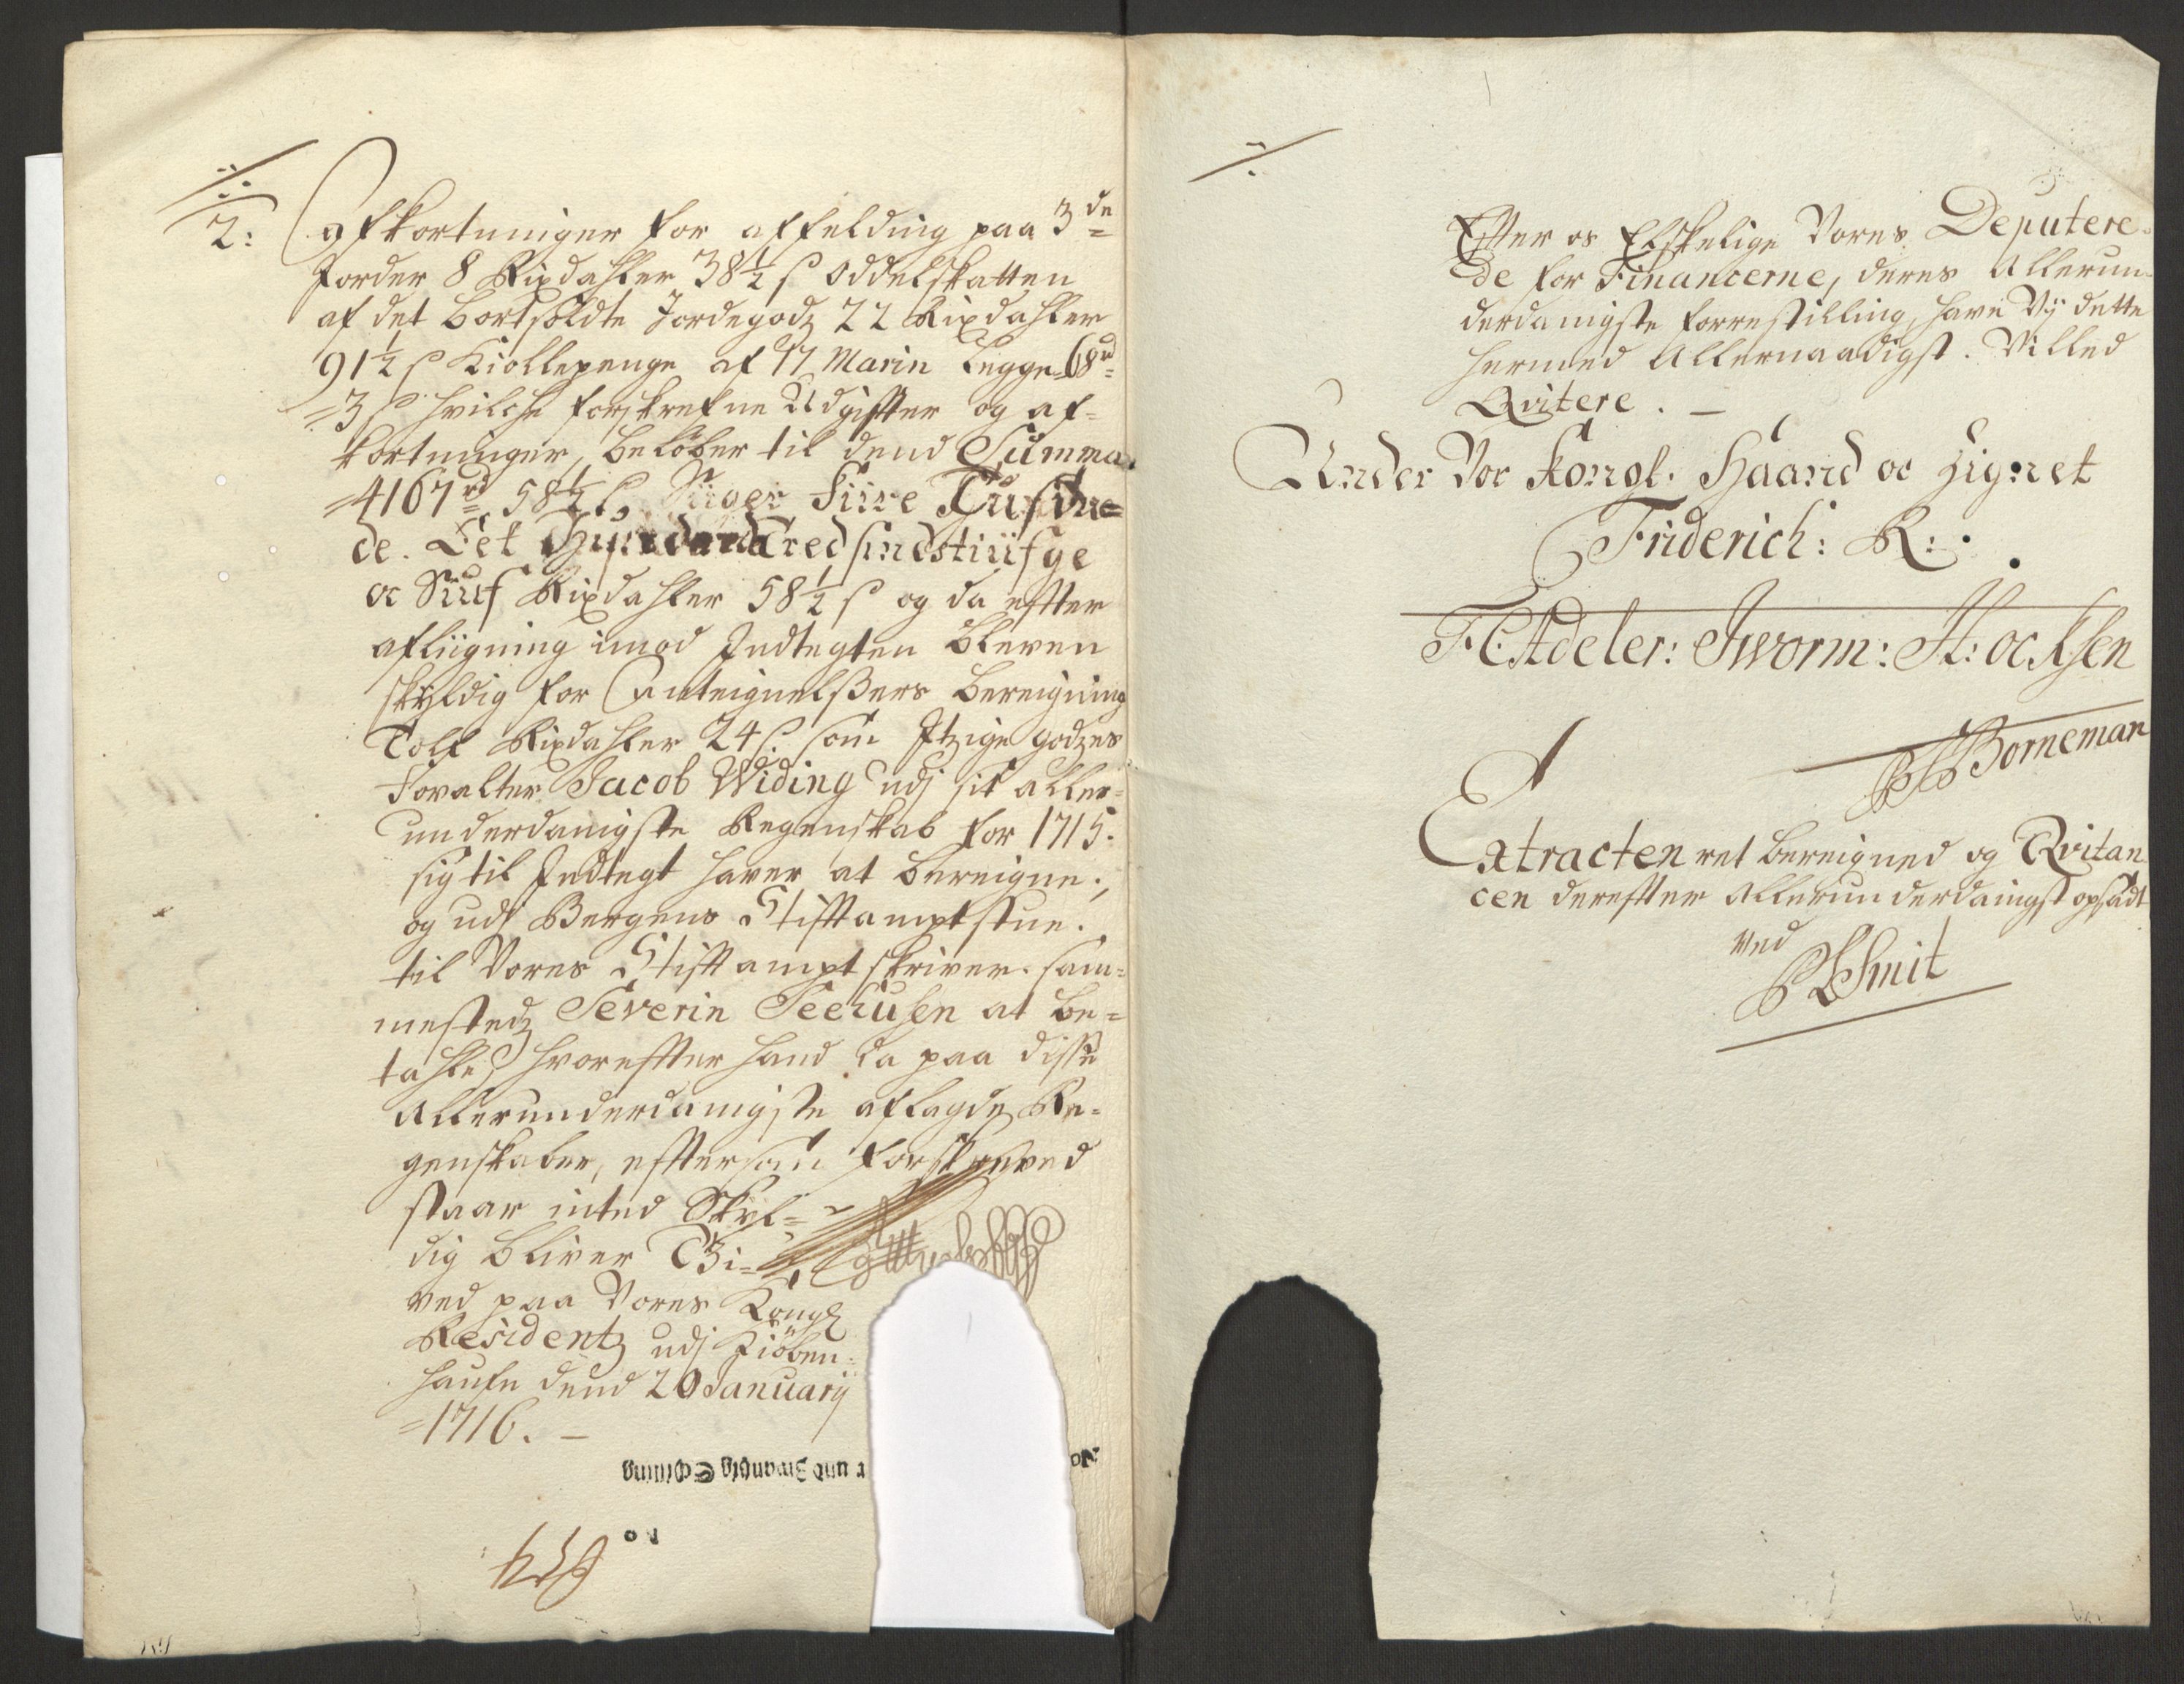 2: Afkortninger for affelding paa 3de
Jorder 8 Rixdahler 38½ s Oddelskatten
af det Bortsoldte Jordegodz 22 Rixdahler
91½ s Kiollepenge af 17 Marin Legge 68rd
=3 s hvilche forskrefne Udgiffter og af=
kortninger, beløber til dend Summa
=4167rd 58½ s, Siiger Fiire Tusin=
de. Eet Hundred Tredsindstiufge
oc Siuf Rixdahler 58½ s og da effter
afliigning imod Indtegten bleven
skyldig for Anteignelssers Bereigning
Tolf Rixdahler 24 s. som Itzige godzes
Forvalter Jacob Widing udj sit aller=
underdanigste Regenskab for 1715.
sig til Indtegt haver at bereigne.,
og udj Bergens Stifftamptstue.
til Vores Stifftamptskriver. sam=
mestedz Severin Seerusen at be=
tahle, hvoreffter hand da paa disse
Allerunderdanigste aflagde Re=
genskaber, effter som forskreved
staar inted Skyl=
dig bliver
ved paa Vores Kongl
Residentz udj Kiöben=
haufn dend 20 Januarij
=1716. –
r und Zwanzig Schilling
No
Effter os Elskelige Vores Deputere
de for Financerne, deres Allerun
derdanigste forrestilling, have Vij dette
hermed Allernaadigst. Villed
Qvitere. –
Under Vor Kongl. Haand oc Zignet
Friderich: R:.
F: Adeler: JWorm: H: ocksen
Borneman
Extracten ret bereigned og Qvitan
cen dereffter Allerunderdanigst opsadt
ved
Smit